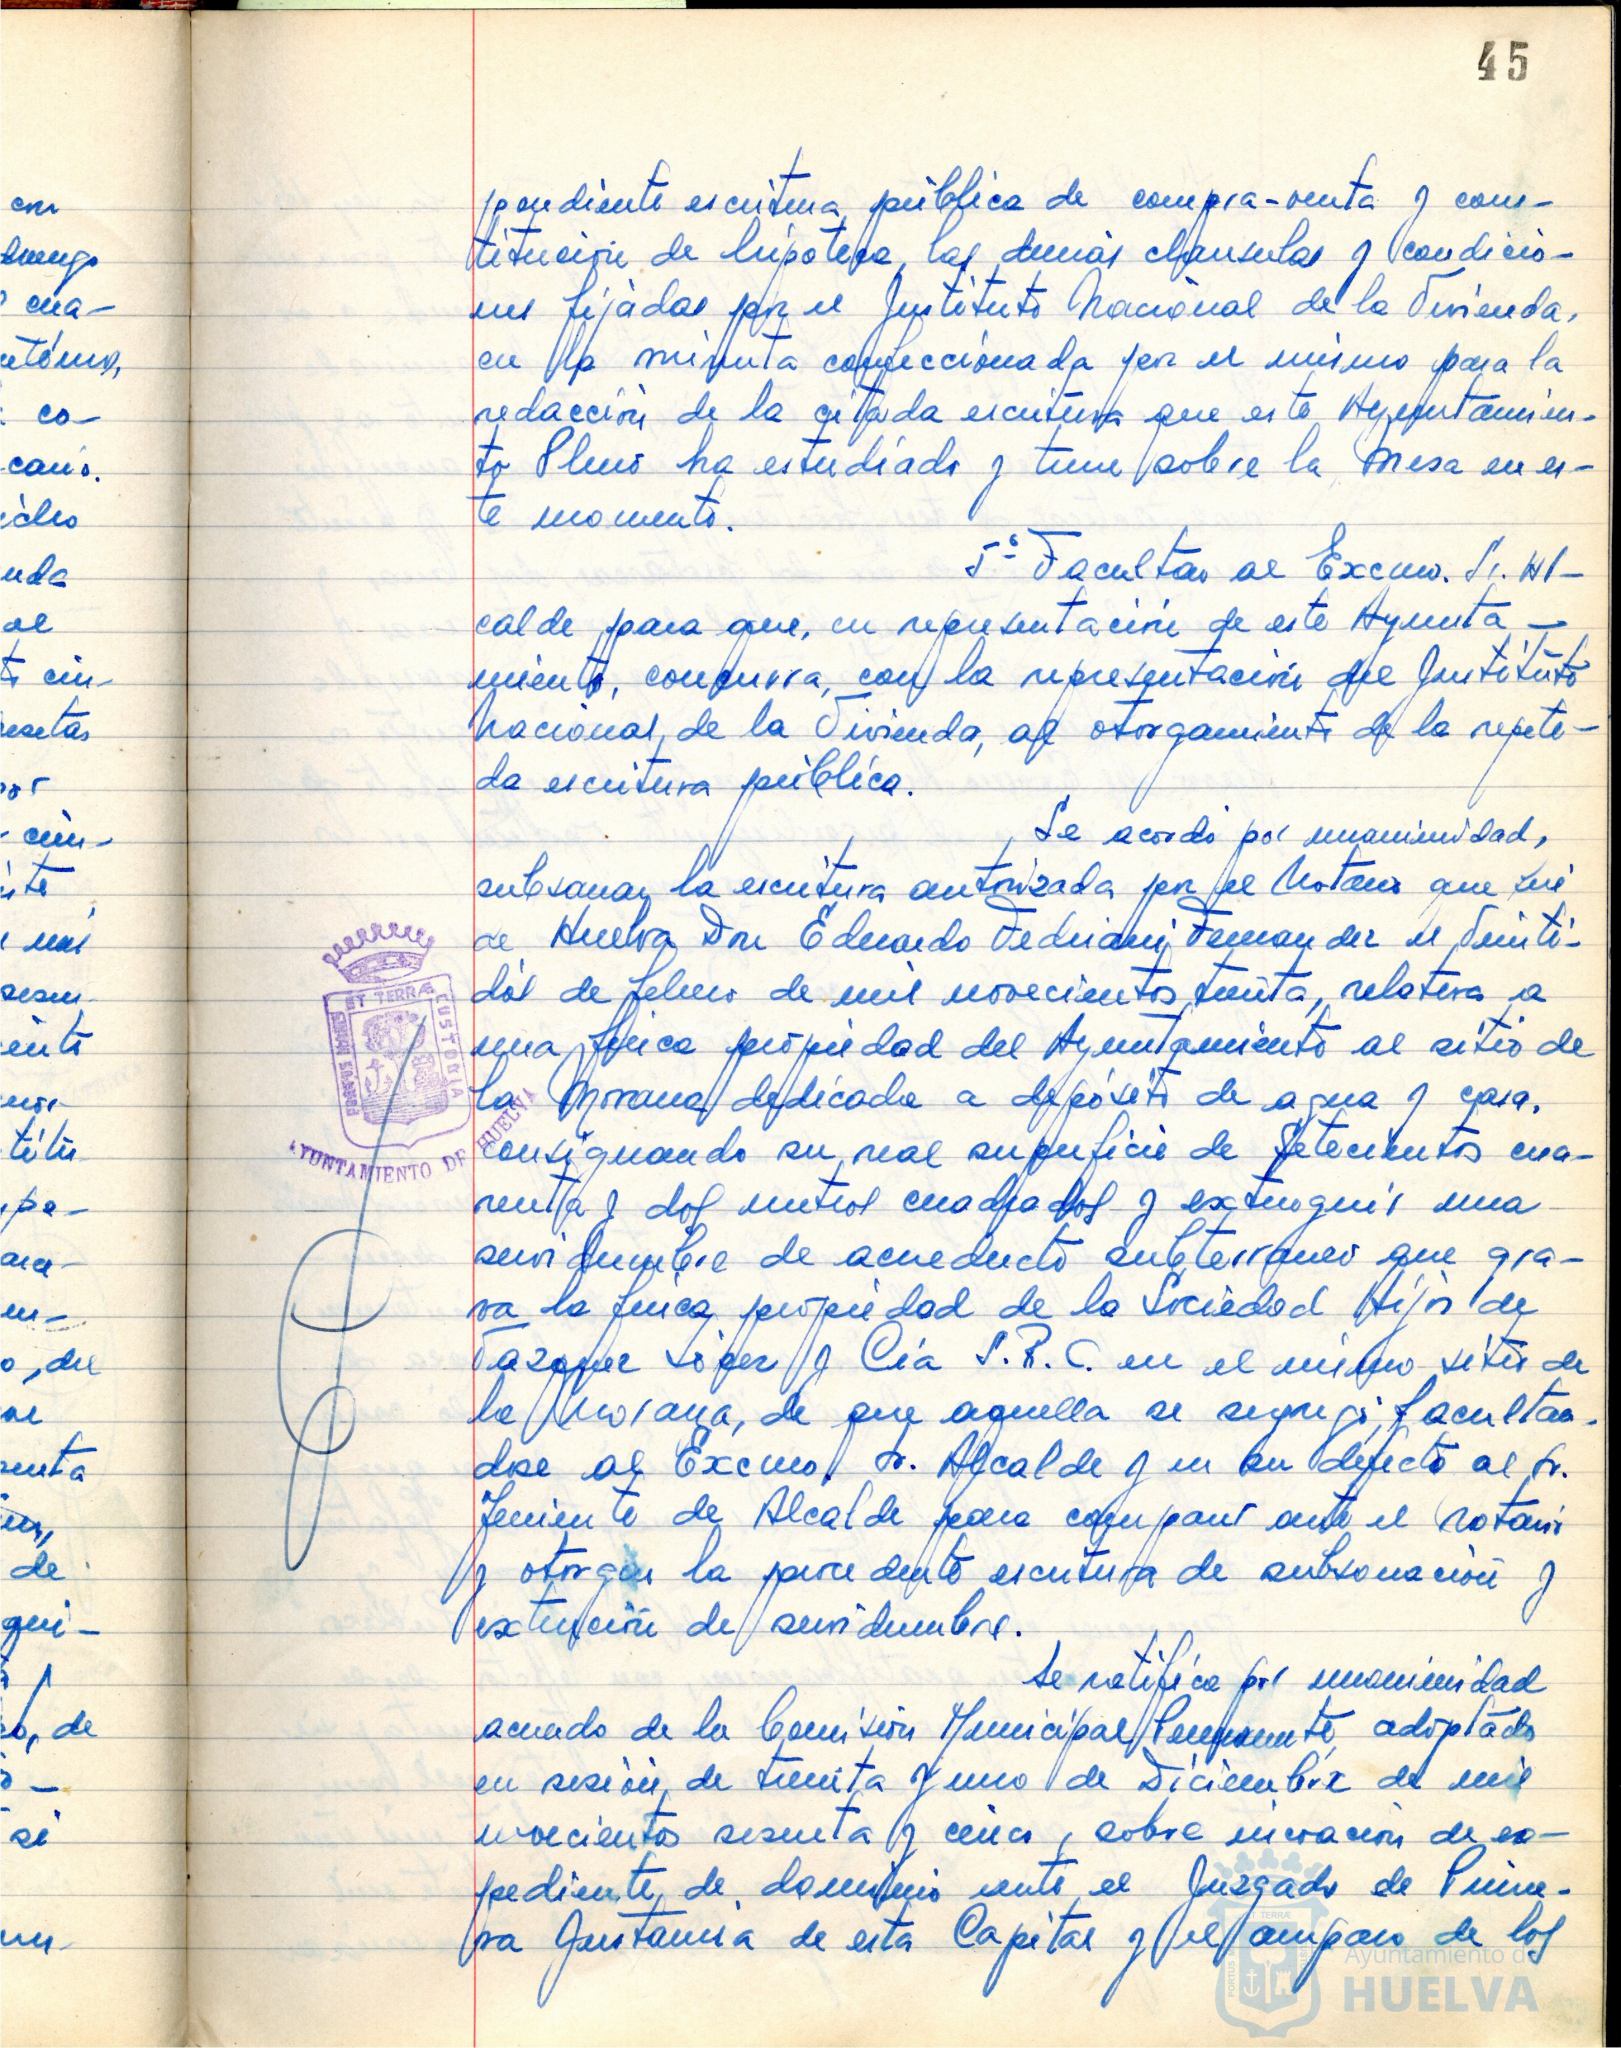 45
pendiente escritura pública de compra-venta y cons-
titución de hipoteca, las demás clausulas y condicio-
nes fijadas por el Instituto Nacional de la Vivienda,
en la minuta confeccionada por el mismo para la
redacción de la citada escritura que este Ayuntamien-
to Pleno ha estudiado y tiene sobre la Mesa en es-
te momento.
5º Facultar al Excmo. Sr. Al-
calde para que, en representación de este Ayunta-
miento, concurra, con la representación del Instituto
Nacional de la Vivienda, al otorgamiento de la repeti-
da escritura pública.
Se acordó por unanimidad,
subsanar la escritura autorizada por el Notario que fué
de Huelva Don Eduardo Fedriani Fernandez el Veinti-
dós de febrero de mil novecientos treinta, relativa a
una finca propiedad del Ayuntamiento al sitio de
la Morana dedicada a depósito de agua y casa,
consignando su real superficie de Setecientos cua-
renta y dos metros cuadrados y extinguir una
servidumbre de acueducto subterraneo que gra-
va la finca propiedad de la Sociedad Hijos de
Vazquez López y Cía S.R.C. en el mismo sitio de
la Morana, de que aquella se segregó, facultan-
dose al Excmo. Sr. Alcalde y en su defecto al Sr.
Teniente de Alcalde para comparecer ante el notario
y otorgar la procedente escritura de subsanación y
extinción de servidumbre.
Se ratifica por unanimidad
acuerdo de la Comisión Municipal Permanente, adoptado
en sesión de treinta y uno de Diciembre de mil
novecientos sesenta y cinco, sobre incoación de ex-
pediente de dominio ante el Juzgado de Prime-
ra Instancia de esta Capital y el amparo de los
PORTUS MARIS ET TERRÆ CUSTODIA
AYUNTAMIENTO DE HUELVA
Ayuntamiento de
HUELVA